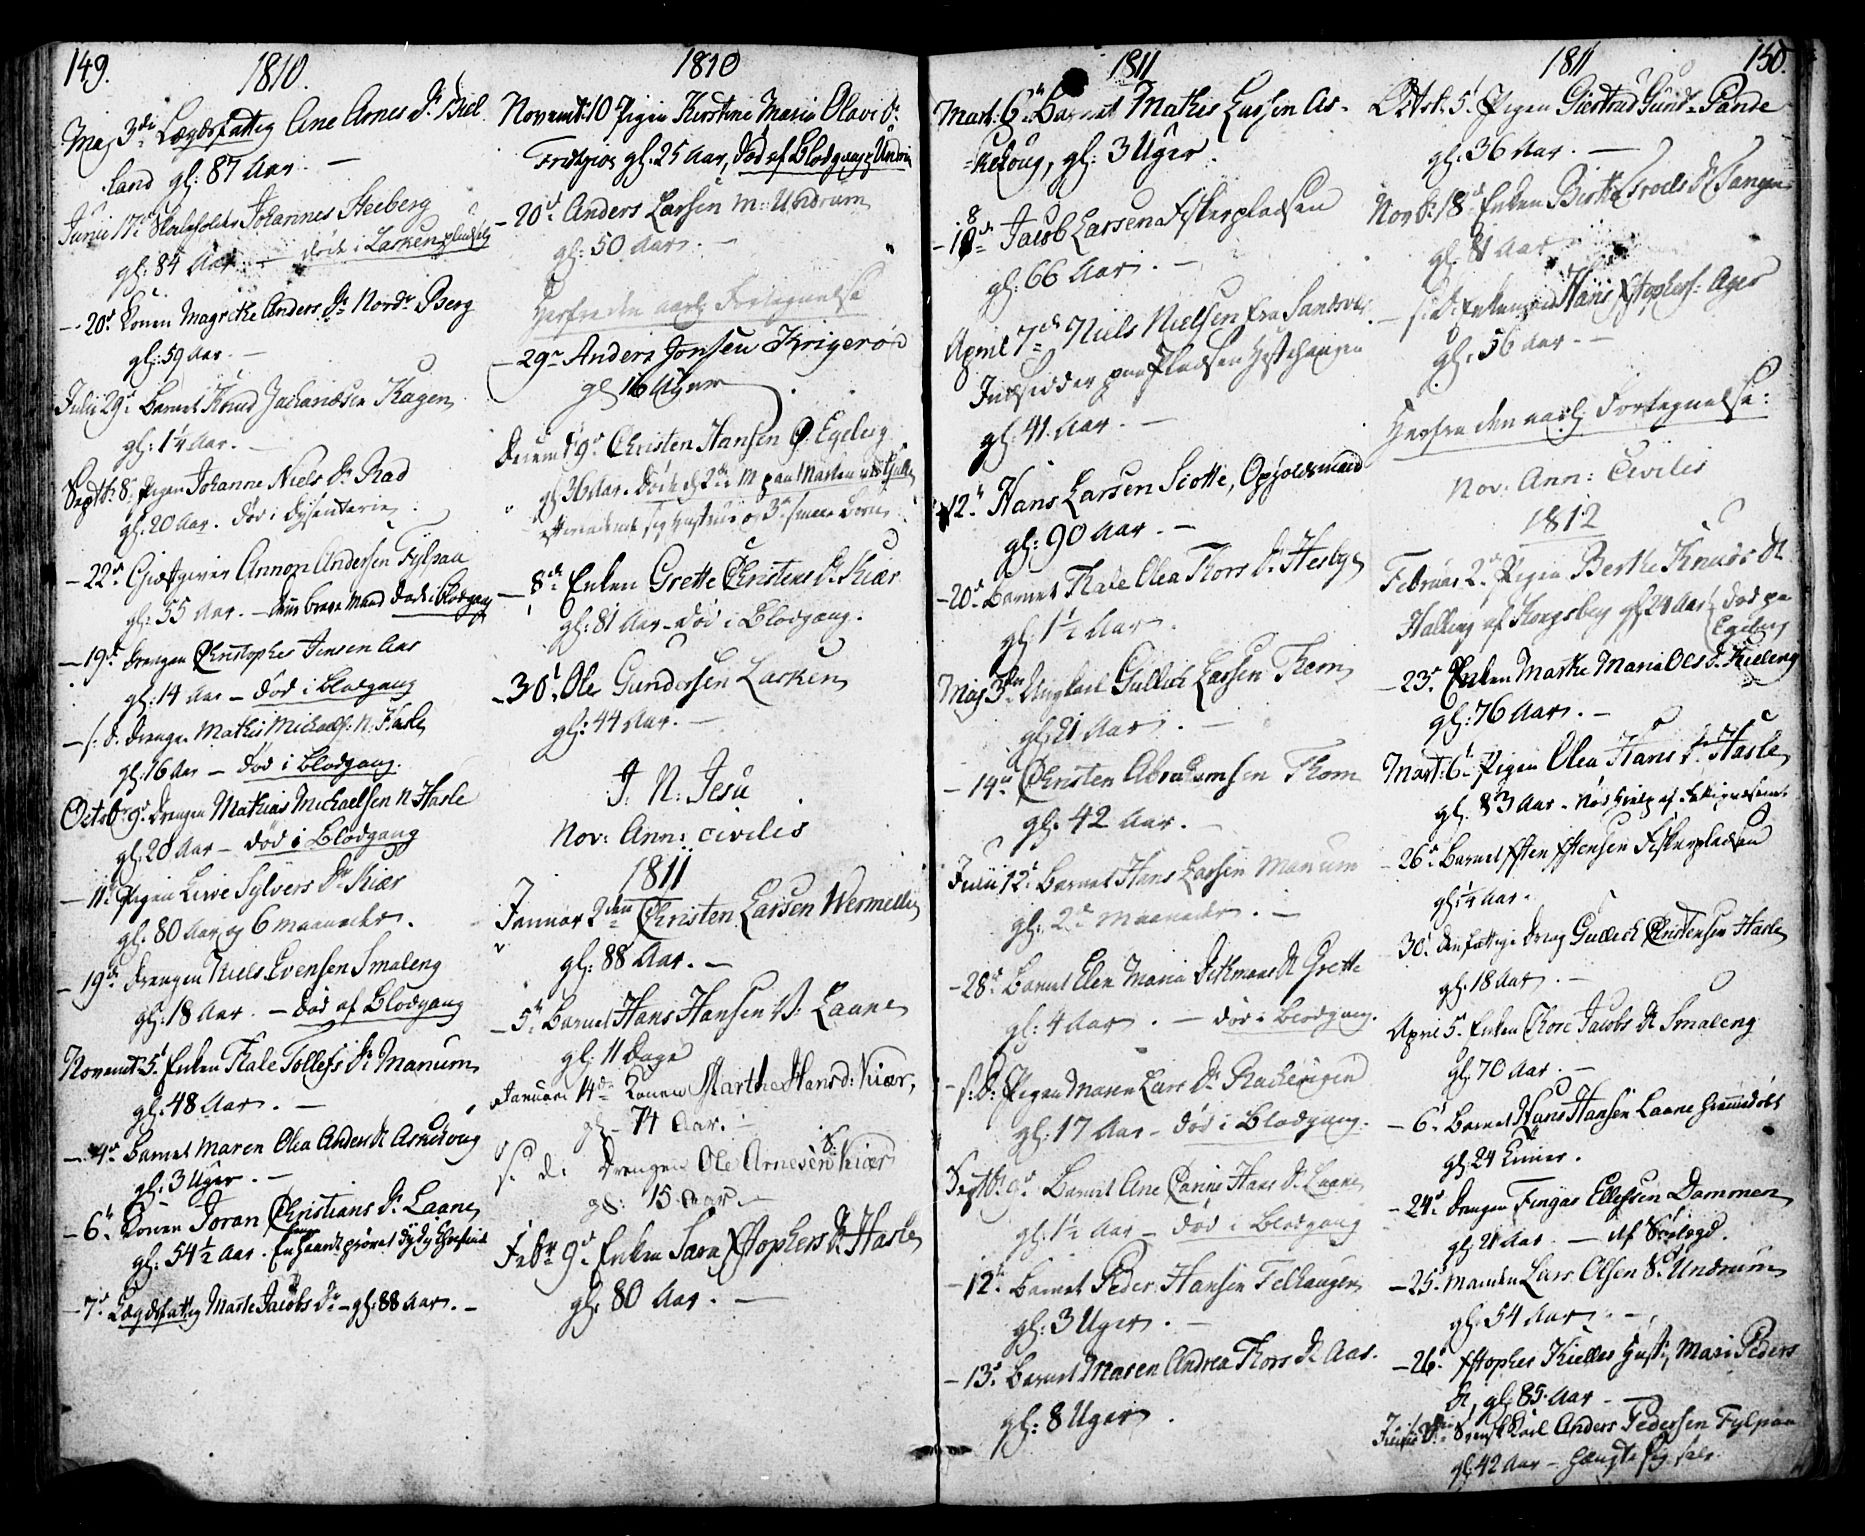 149.
1810.
Maj 3de Lægdsfattig Ane Arnes Dr
land gl: 87 Aar. —
Junii 17de Johannes Steeberg
gl: 84 Aar — døde i
— 20de Konen Magrethe Anders Dr Nordr Berg
gl: 59 Aar. —
Julii 29de Barnet Knud Hagen
gl: 1¼ Aar. —
Septbr 8de Pigen Johanne Niels Dr Rad
gl: 20 Aar. død i Dysenterie
— 22de Giæstgiver Annon Andersen Fylpaa
gl: 55 Aar. — denne brave Mand døde i Blodgang
— 19de Drengen Christopher Jensen Aas
gl: 14 Aar — død i Blodgang
— s: d: Drengen Mathis Michaels: N. Hasle
gl: 16 Aar — død i Blodgang.
Octobr 9de Drengen Mathias Michaelsen N Hasle
gl: 20 Aar — død i Blodgang
— 11te Pigen Live Sylvers Dr Kiær
gl: 80 Aar og 6 maaneder.
— 19de Drengen Niels Evensen Smaleng
gl: 18 Aar. — død af Blodgang
Novembr 5te Enken Thale Tollefs Dr Manum
gl: 48 Aar. —
— 4de Barnet Maren Olea Anders Dr Askeroug
gl: 3 Uger. —
— 6te Konen Joran Christians Dr Laane
gl: 54½ Aar. En prøvet dydig Christinde
— 7de Lægdsfattig Marte Jacobs Dr — gl: 88 Aar. —
1810
Novembr: 10 Pigen Kirstine Maria Olavi Dr
gl. 25 Aar, død af Blodgang Undrum
— 20de Anders Larsen m: Undrum
gl: 50 Aar. —
Herfra den aarl: Fortegnelse
— 29de Anders Jonsen Krigerød
gl 16 Uger
Decembr 9de Christen Hansen Ø. Egeberg
gl 36 Aar. døde d 2de
efterladende sig Hustrue og 3de smaae Børn
— 8de Enken Grette Christens Dr Kiær
gl: 81 Aar — død i Blodgang.
— 30te Ole Gundersen Larken
gl: 44 Aar. —
J: N: Jesu
Nov: Ann: civilis
1811
Januar 2den Christen Larsen Wermelle
gl: 88 Aar. —
— 5te Barnet Hans Hansen V: Laane
gl: 11 Dage
Januari 14de Konen Marthe Hansd: Kiær,
gl — 74 Aar. —
s. d: Drengen Ole Arnesen S: Kiær
gl: 15 Aar —
Febr 9de Enken Sara Xstophers Dr Hasle
gl: 80 Aar. —
1811
Mart: 6te Barnet Mathis Larsen As-
keroug, gl: 3 Uger.
8
— 10de Jacob Larsen Fiskerpladsen
gl: 66 Aar. —
April 7de Niels Nielsen fra Sandsvær
Indsidder paa Pladsen Hestehaugen
gl: 41 Aar. —
— 12te Hans Larsen Slotte, Opholdsmand
gl: 90 Aar. —
— 20de Barnet Thale Olea Thors Dr Hesby
gl: 1½ Aar.
Maj 3de Ungkarl Gullich Larsen Thom
gl 21 Aar. —
— 14de Christen Abrahamsen Thom
gl: 42 Aar.
Junii 12te Barnet Hans Larsen Manum
gl: 2de maaneder. —
— 28de Barnet Elen Maria Ditmans Dr Grette
gl: 4 Aar. — død i Blodgang.
— s: d: Pigen Maren Lars Dr
gl: 17 Aar — død i Blodgang.
Septbr 9de Barnet Ane Carine Hans Dr Laane
gl: 1½ Aar — død i Blodgang
— 12te Barnet Peder Hansen Felhaugen
gl: 3 Uger. —
— 13de Barnet Maren Andrea Thors Dr Aas.
gl: 8 Uger.
1811
150.
Octobr: 5te Pigen Giertrud Gund:
gl: 36 Aar. —
Novbr 18de Enken Birthe Troels Dr Hangen
gl: 81 Aar
— s: d: Hans Xstophers: Ager
gl: 56 Aar. —
Herfra den aarl: Fortegnelse:
Nov: Ann: civilis
1812
Februar 2de Pigen Berthe Knuds Dr
Halling af Kongsberg gl 24 Aar død pa
Egeberg
— 23de Enken Marthe Maria Ols Dr
gl: 76 Aar. —
Mart: 6te Pigen Olea Hans Dr Hasle
gl. 83 Aar — Nød Hielp af Fattigvæsenet
— 26de Barnet Sten Stensen Fiskerpladsen
gl: ¼ Aar.
30te den fattige Dreng Gullich Christensen Hasle
gl: 18 Aar. —
April 5te Enken Chore Jacobs Dr Smaleng
gl: 70 Aar. —
— 6te Barnet Hans Hansen Laane
gl: 24 Timer.
— 24de Drengen Fingar Ellefsen Dammen
gl: 21 Aar. —
— 25de Manden Lars Olsen S: Undrum
gl: 54 Aar. —
— 26de Xstopher Hust: Mari Peders
Dr, gl: 85 Aar —
Karl Anders Pedersen Fylpaa
gl: 42 Aar — hængte sig selv.